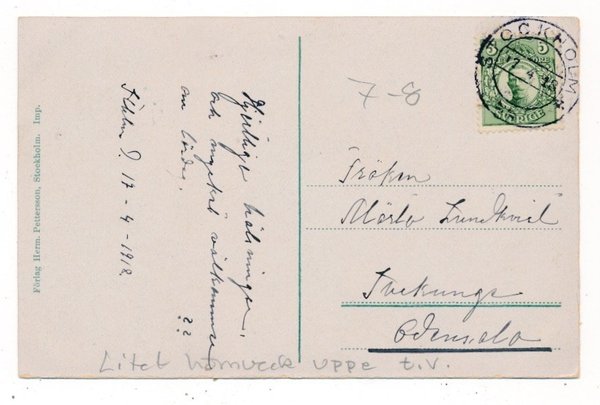 Förlag Herm. Pettersson, Stockholm. Imp.
Hjertliga hälsningar,
och mycket välkommen
om lördag
??
Sthlm D. 17-4-1912
7-8
STOCKHOLM
17 4 12
5 5
SVERIGE
Fröken
Märta Lundkvist
Odensala
Litet hörnveck uppe t.v.